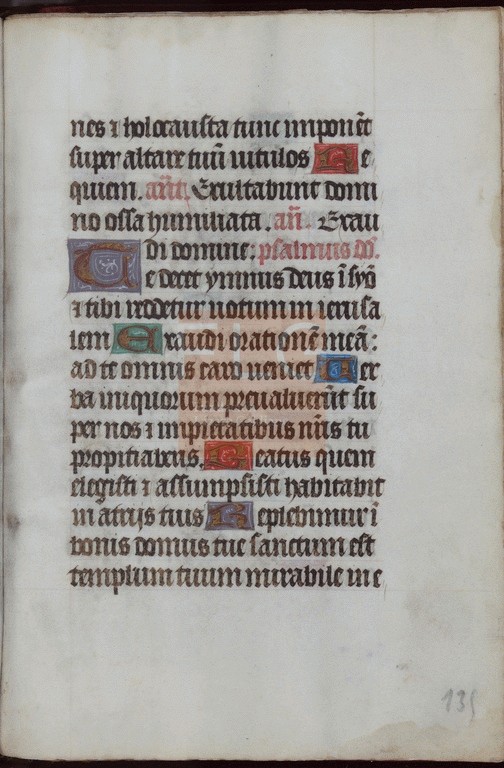 nes ⁊ holocausta tunc imponēt
super altare tuū uitulos Re
quiem. añt. Exultabunt domi
no ossa humiliata. añ. Exau
di domine: psalmus dd.
Te decet ymnus deus ī syō
⁊ tibi reddetur uotum in ierusa
lem Exaudi orationē meā:
ad te omnis caro ueniet Uer
ba iniquorum preualuerūt su
per nos ⁊ impietatibus nr̄is tu
propitiaberis. Beatus quem
elegisti ⁊ assumpsisti habitabit
in atrijs tuis Replebimur ī
bonis domus tue sanctum est
templum tuum mirabile in e
135